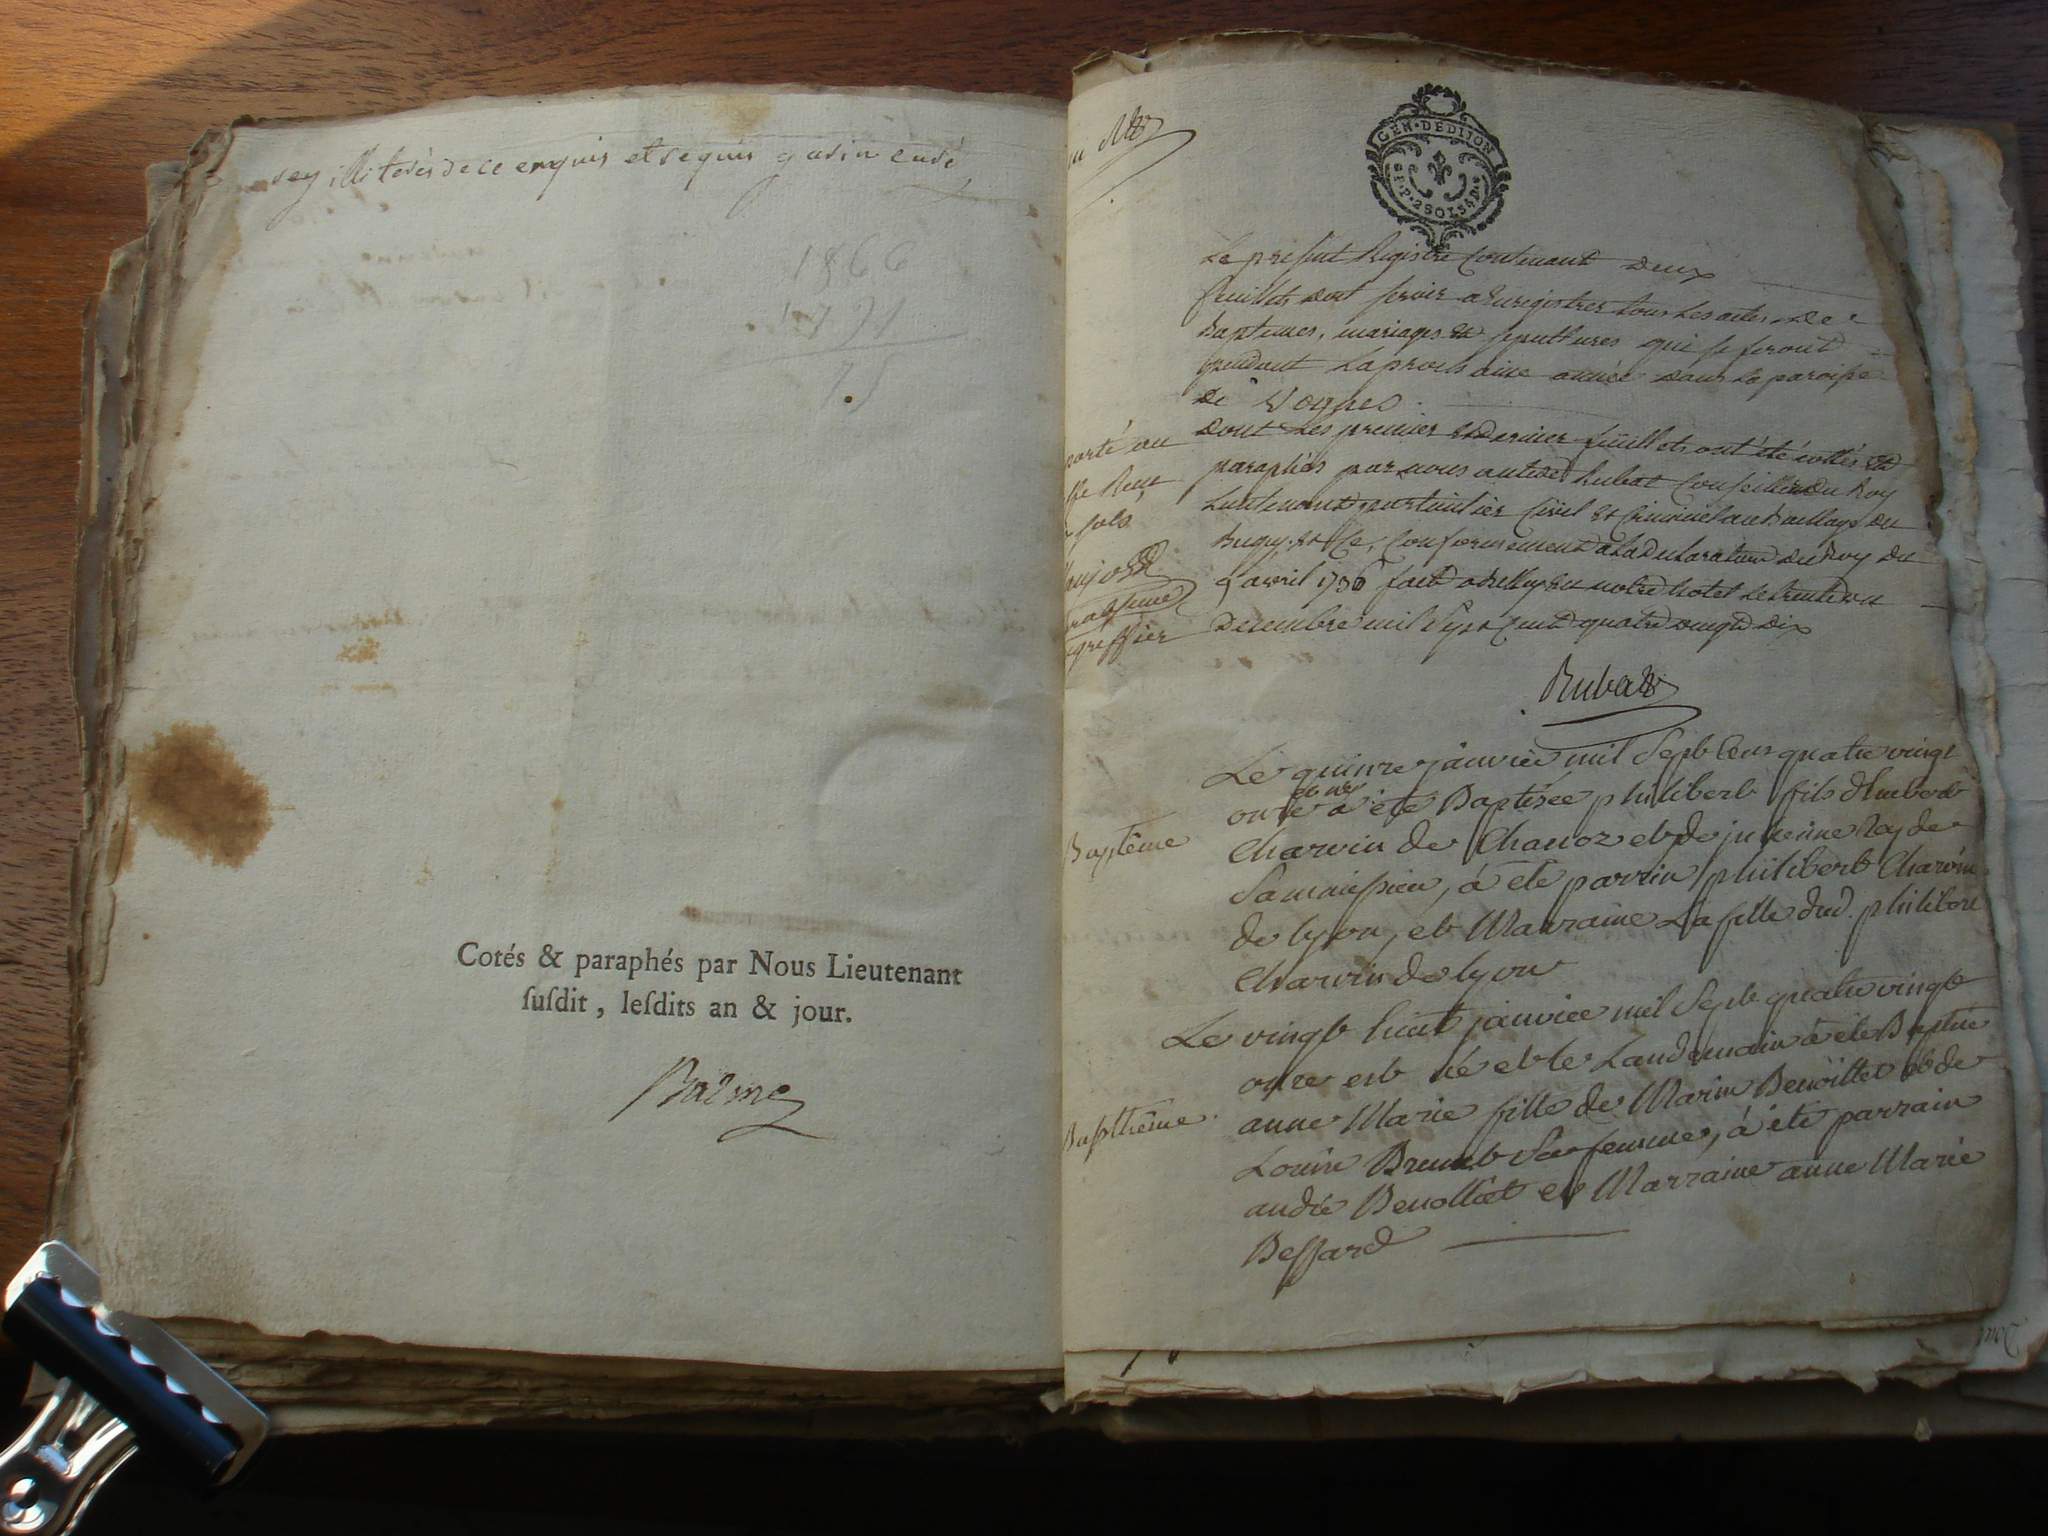 rey illiterés de ce enquis et requis gavin curé
1866
1791
75
Cotés & paraphés par Nous Lieutenant
ſuſdit, leſdits an & jour.
Balme
GEN·DE DIJON
P·P·2SOLS4D
Le present Registre Contenant deux
feuillets doit servir a Enregistrer tous les actes de
Baptemes, mariages et sepultures qui se feront
pendant la prochaine année dans la paroisse
de Vognes
dont les premier et dernier feuillets ont été cottés et
paraphés par nous Rubat Conseiller du Roy
Lieutenant particulier Civil et Criminel au Bailliage du
Bugey Conformement a la declaration du Roy du
9 avril 1736 fait a Belley en notre hotel le trente un
Decembre mil Sept Cent quatre vingt dix
Rubat
porté au
sols
greffier
Le quinze janvier mil Sept Cens quatre vingt
et né
onze a été Baptisée philibert fils d'humbert
Baptême
Charvin de Chanoz et de julienne Rey de
Samoissieu, à été parrin philibert Charvin
de lyon, et Marraine La fille dud. philibert
Charvin de lyon
Le vingt huit janvier mil Sept quatre vingt
onze est né et le Landemain à été Baptisé
Bapthême
anne Marie fille de Marin Benoillet et de
Louise Brunet Sa femme, à été parrain
andré Benolliet et Marraine anne Marie
Bessard